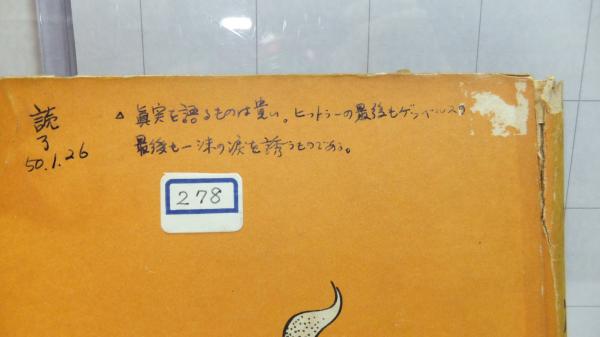 読
了
50.1.26
△ 眞実を語るものは貴い。ヒットラーの最後もゲッベルスの
最後も一沫の涙を誘うものである。
278